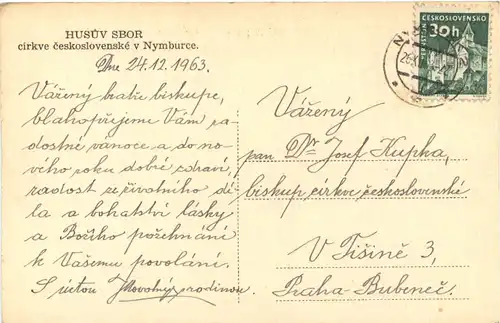 HUSŮV SBOR
církve československé v Nymburce.
Dne 24.12.1963.
Vážený bratře biskupe,
blahopřejeme Vám ra-
dostné vánoce a do no-
vého roku dobré zdraví,
radost ze životního dí-
la a bohatství lásky
a Božího požehnání
k Vašemu povolání.
S úctou Novotný s rodinou.
ČESKOSLOVENSKO
30h
Vážený
pan Dr Josef Kupka,
biskup církve československé
V Tišině 3,
Praha-Bubeneč.